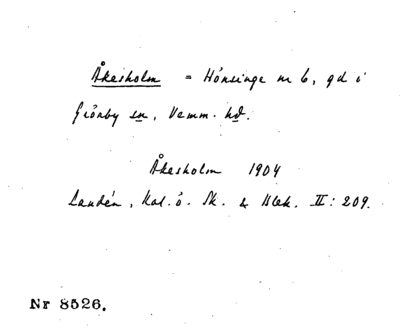 Åkesholm = Hönsinge nr 6, gd i
Grönby sn, Vemm. hd.
Åkesholm 1904
Landén, Kal. ö. Sk. & Blek. II: 209.
Nr 8526.